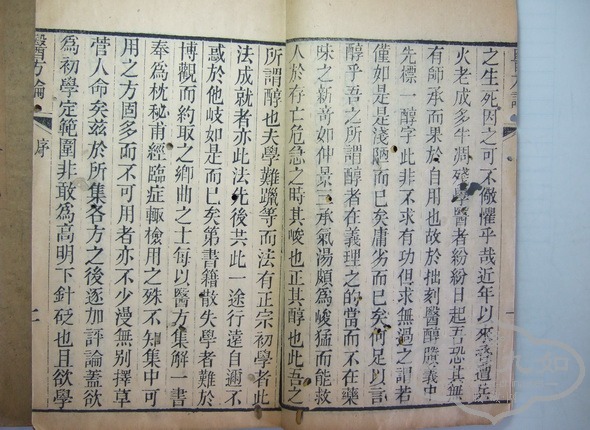 之生死因之可不儆懼乎哉近年以來迭遭兵
火老成多半凋殘學醫者紛紛日起吾恐其無
有師承而果於自用也故於拙刻醫醇賸義中
先標一醇字此非不求有功但求無過之謂若
僅如是是淺陋而已矣庸劣而已矣何足以言
醇乎吾之所謂醇者在義理之的當而不在藥
味之新奇如仲景三承氣湯頗為峻猛而能救
人於存亡危急之時其峻也正其醇也此吾之
所謂醇也夫學難躐等而法有正宗初學者此
法成就者亦此法先後共此一途行遠自邇不
惑於他岐如是而已矣第書籍散失學者難於
博觀而約取之鄉曲之士每以醫方集解一書
奉為枕秘甫經臨症輒檢用之殊不知集中可
用之方固多而不可用者亦不少漫無別擇草
菅人命矣茲於所集各方之後逐加評論蓋欲
為初學定範圍非敢為高明下針砭也且欲學
醫方論 序 二